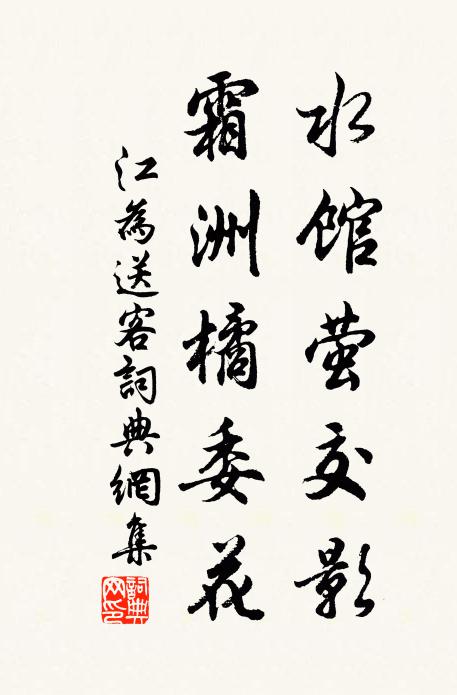 水馆萤交影
霜洲橘委花
江為送客詞典網集
詞典網印